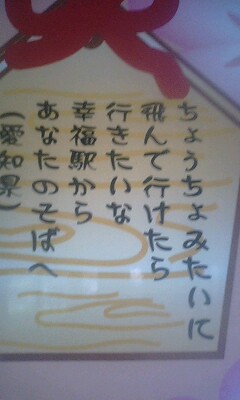 ちょうちょみたいに
飛んで行けたら
行きたいな
幸福駅から
あなたのそばへ
（愛知県）